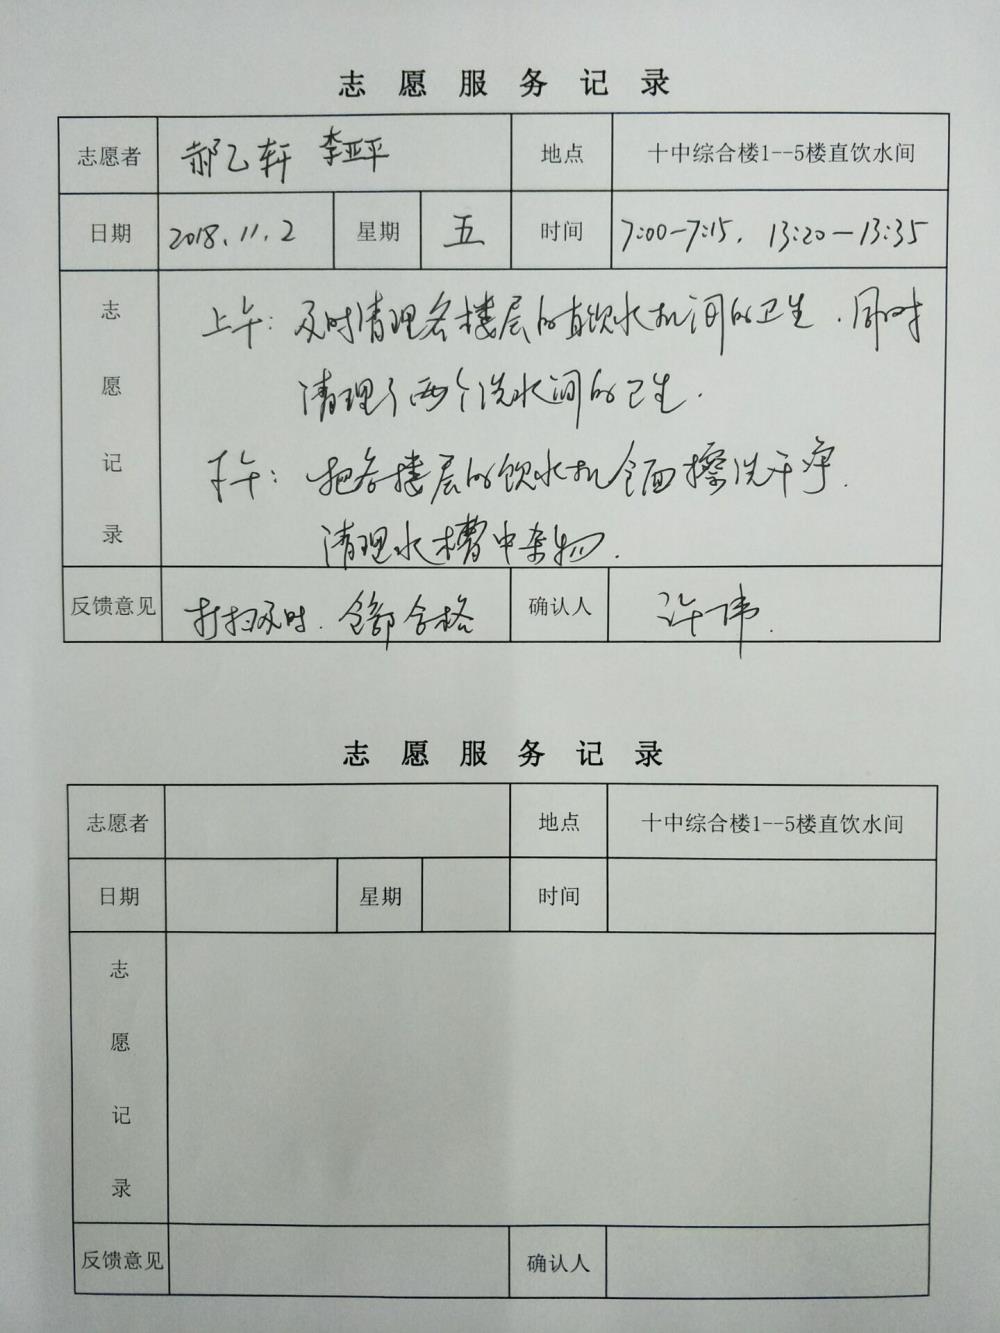 志愿服务记录
志愿者 郝乙轩 李亚平 地点 十中综合楼1--5楼直饮水间
日期 2018.11.2 星期 五 时间 7:00-7:15. 13:20-13:35
志愿记录
上午:及时清理各楼层的直饮水机间的卫生.同时
清理了两个洗水间的卫生.
下午:把各楼层的饮水机全面擦洗干净.
清理水槽中杂物.
反馈意见 打扫及时.全部合格 确认人 许伟.
志愿服务记录
志愿者 地点 十中综合楼1--5楼直饮水间
日期 星期 时间
志愿记录
反馈意见 确认人